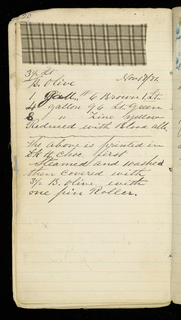 Nov 17/82
B. Olive
1 gall. #6 Brown Lt.
4 gallon 96 Lt. Green
8 " Zinc Yellow
Reduced with Blood alb.
The above is printed in
first
Steamed and washed
then covered with
B. Olive, with
one pin Roller.